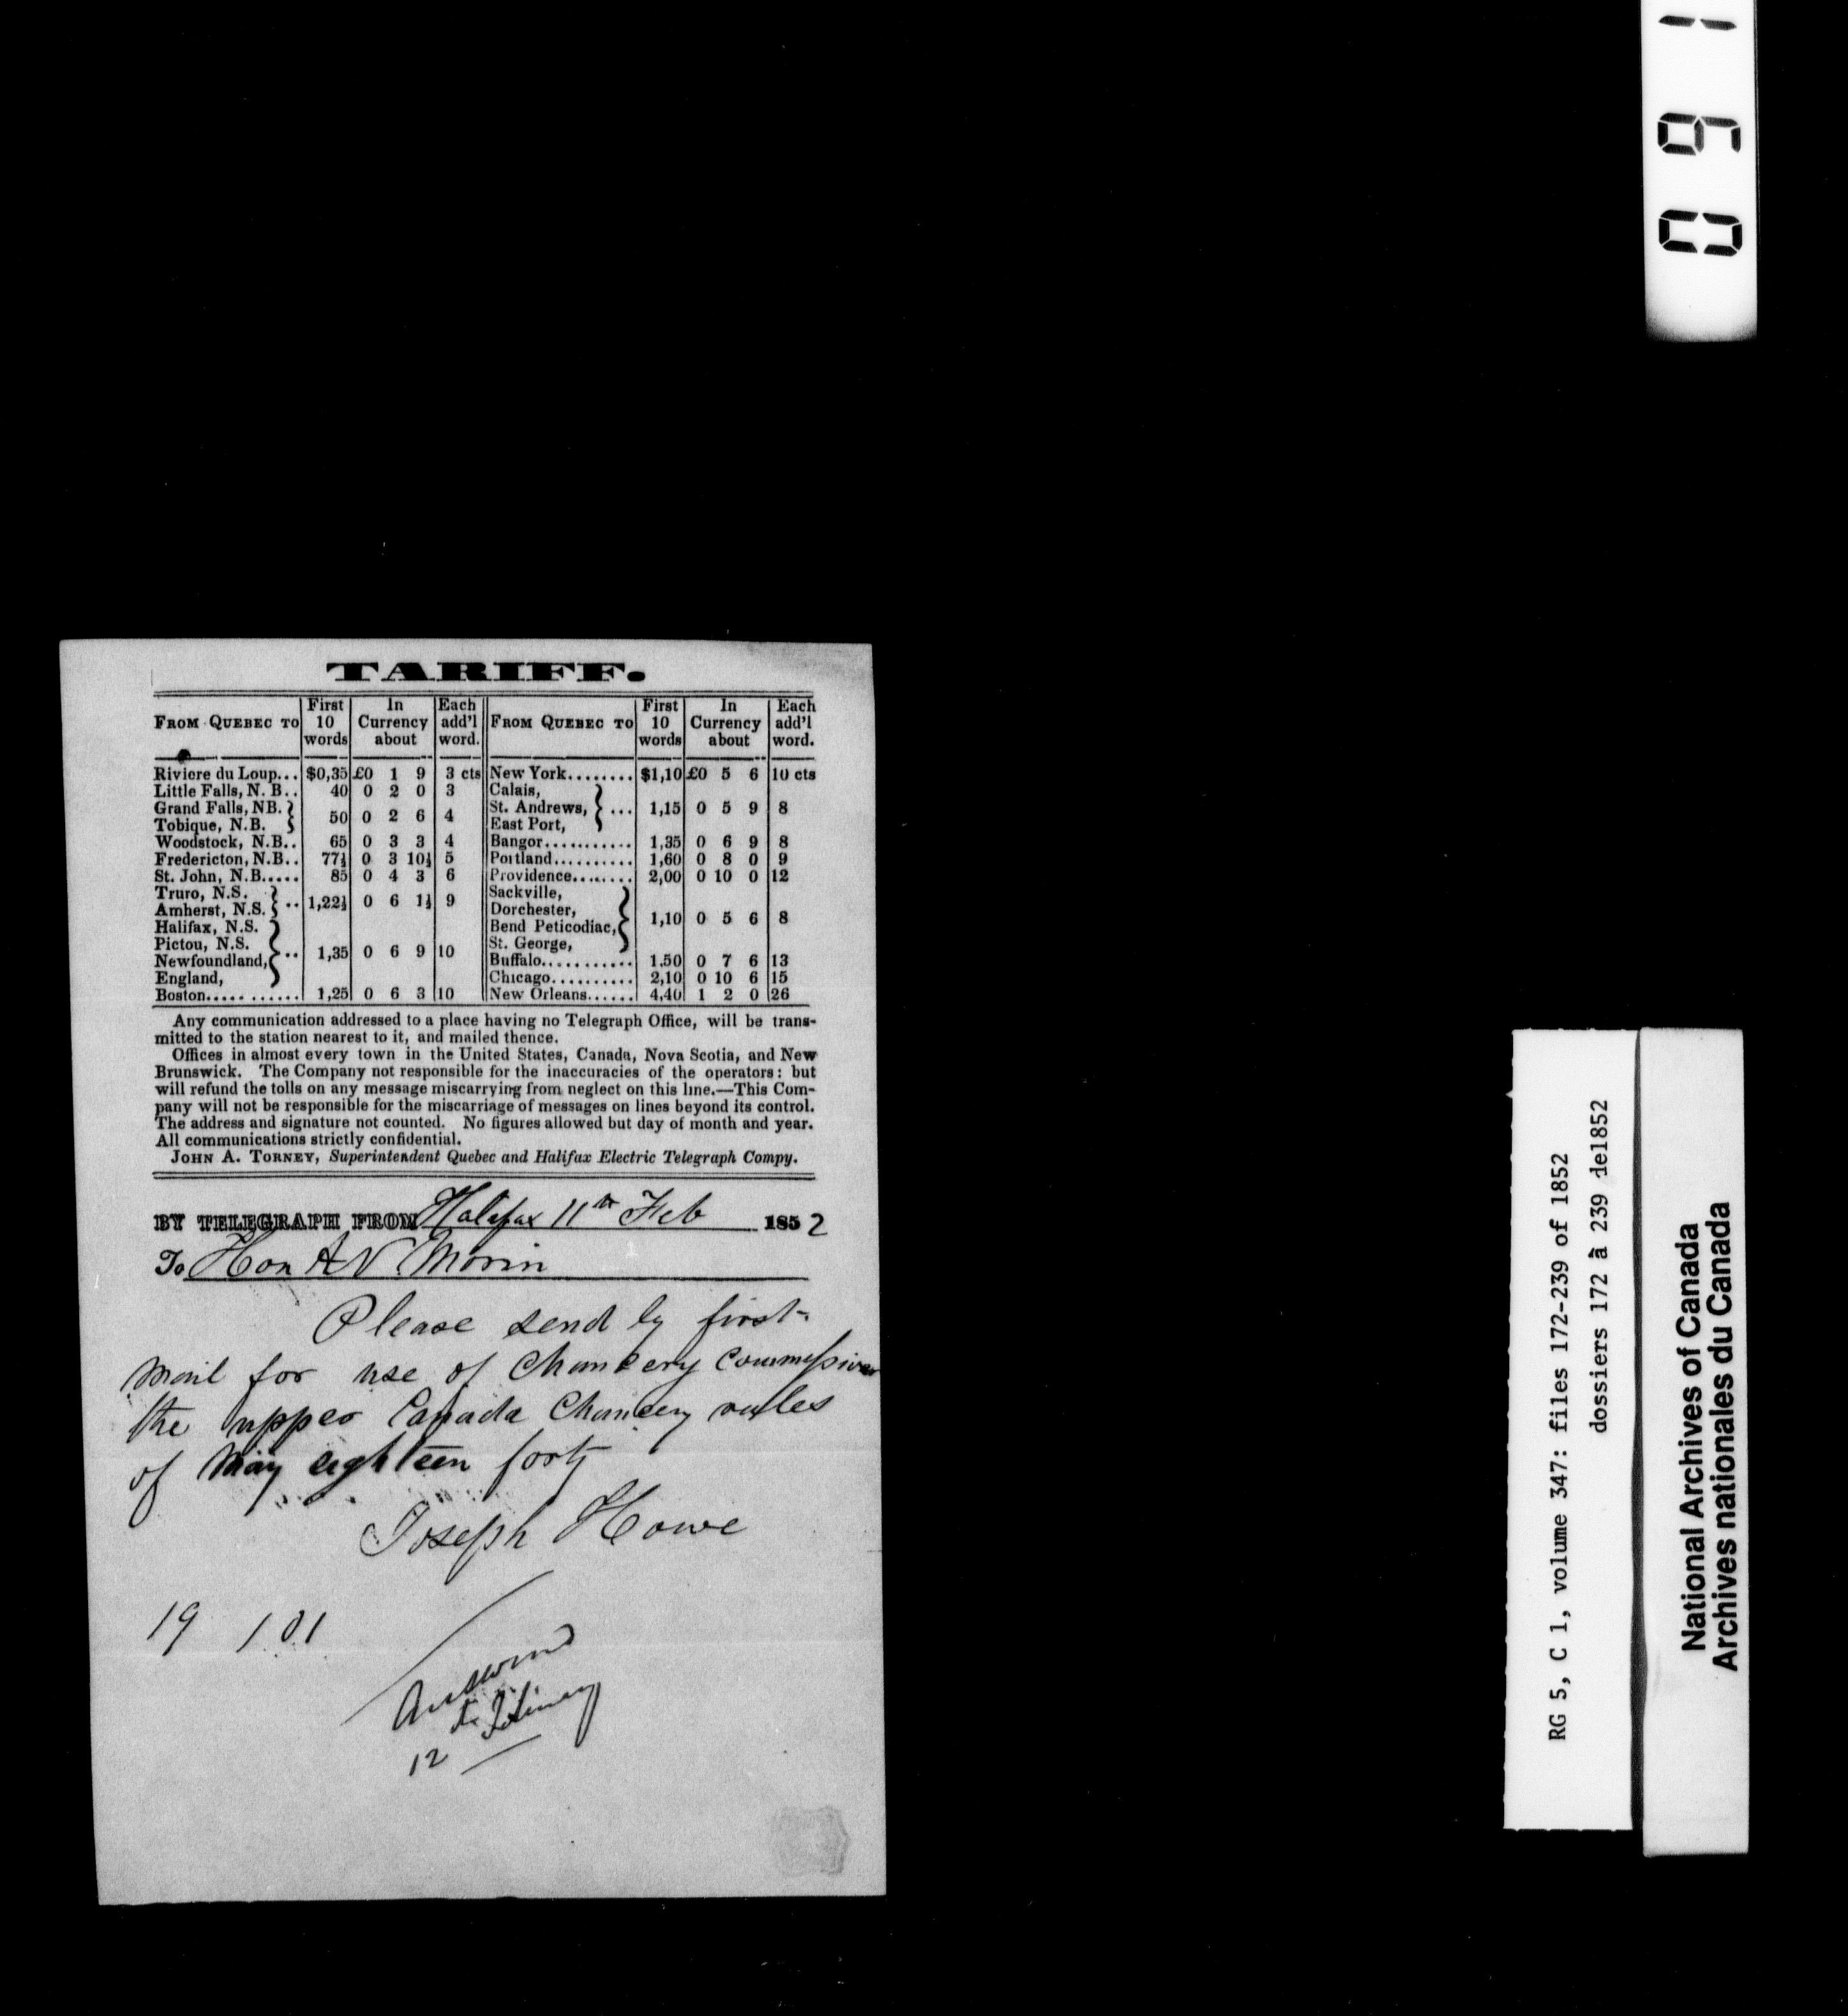 0 9 1
TARIFF.
FROM QUEBEC TO | First 10 words | In Currency about | Each add'l word. | FROM QUEBEC TO | First 10 words | In Currency about | Each add'l word.
Riviere du Loup... $0,35 £0 1 9 3 cts
Little Falls, N. B.. 40 0 2 0 3
Grand Falls, NB. }
Tobique, N.B. } 50 0 2 6 4
Woodstock, N.B.. 65 0 3 3 4
Fredericton, N.B.. 77½ 0 3 10½ 5
St. John, N.B..... 85 0 4 3 6
Truro, N.S. }
Amherst, N.S. } .. 1,22½ 0 6 1½ 9
Halifax, N.S. }
Pictou, N.S.
Newfoundland, } .. 1,35 0 6 9 10
England, }
Boston........... 1,25 0 6 3 10
New York........ $1,10 £0 5 6 10 cts
Calais, }
St. Andrews, } ... 1,15 0 5 9 8
East Port, }
Bangor........... 1,35 0 6 9 8
Portland.......... 1,60 0 8 0 9
Providence........ 2,00 0 10 0 12
Sackville, }
Dorchester,
Bend Peticodiac, } 1,10 0 5 6 8
St. George, }
Buffalo........... 1.50 0 7 6 13
Chicago.......... 2,10 0 10 6 15
New Orleans...... 4,40 1 2 0 26
Any communication addressed to a place having no Telegraph Office, will be trans-
mitted to the station nearest to it, and mailed thence.
Offices in almost every town in the United States, Canada, Nova Scotia, and New
Brunswick. The Company not responsible for the inaccuracies of the operators: but
will refund the tolls on any message miscarrying from neglect on this line.—This Com-
pany will not be responsible for the miscarriage of messages on lines beyond its control.
The address and signature not counted. No figures allowed but day of month and year.
All communications strictly confidential.
JOHN A. TORNEY, Superintendent Quebec and Halifax Electric Telegraph Compy.
BY TELEGRAPH FROM Halifax 11th Feb 1852
To Hon A N Morin
Please send by first
mail for use of Chancery Commission
the upper Canada Chancery rules
of May eighteen forty
Joseph Howe
19 1.0.1
Answered
12
RG 5, C 1, volume 347: files 172-239 of 1852
dossiers 172 à 239 de1852
National Archives of Canada
Archives nationales du Canada